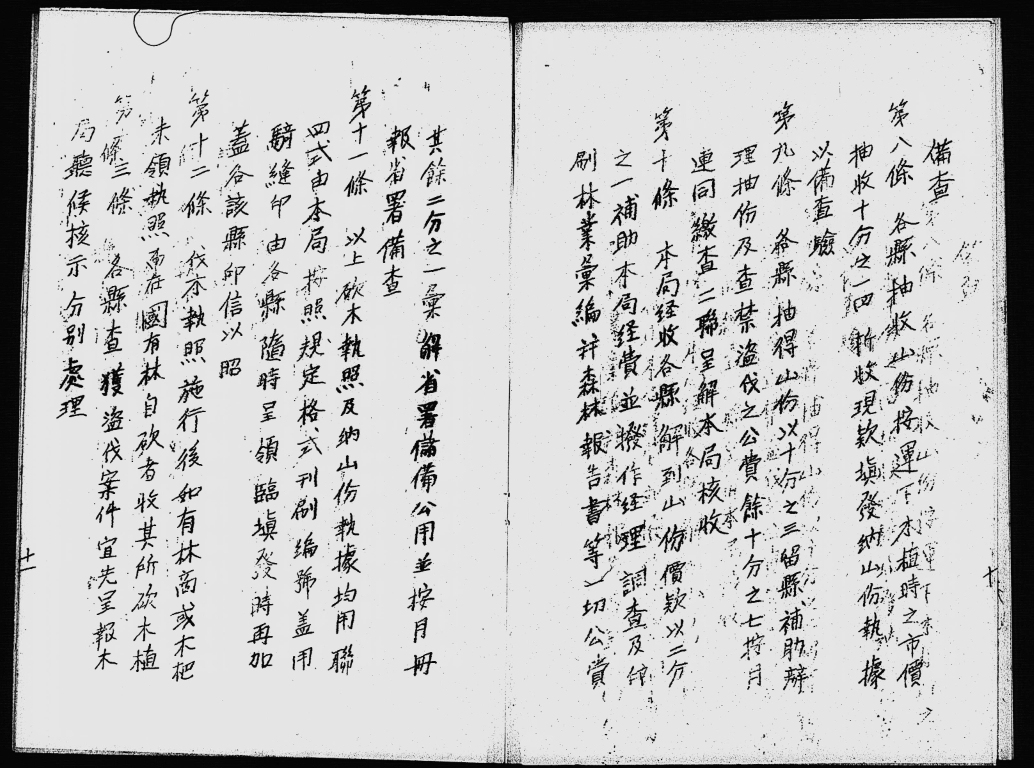 備查
第八條　各縣抽收山份按運下木植時之市價
抽收十分之一四　新收現款填發納山份執據
以備查驗
第九條　各縣抽得山份以十分之三留縣補助辦
理抽份及查禁盜伐之公費餘十分之七按月
連同繳查二聯呈解本局核收
第十條　本局经收各縣解到山份價款以二分
之一補助本局经費並撥作经理調查及
刷林業彙編并森林報告書等一切公費
其餘二分之一彙解省署儲備公用並按月冊
報省署備查
第十一條　以上砍木執照及納山份執據均用聯
四式由本局按照規定格式刊刷編號盖用
騎縫印由各縣隨時呈領臨填發時再加
蓋各該縣印信以照
第十二條　伐木執照施行後如有林商或木把
未領執照而在國有林自砍者收其所砍木植
第條三條　各縣查獲盜伐案件宜先呈報木
局聽候核示分别處理
十
十一